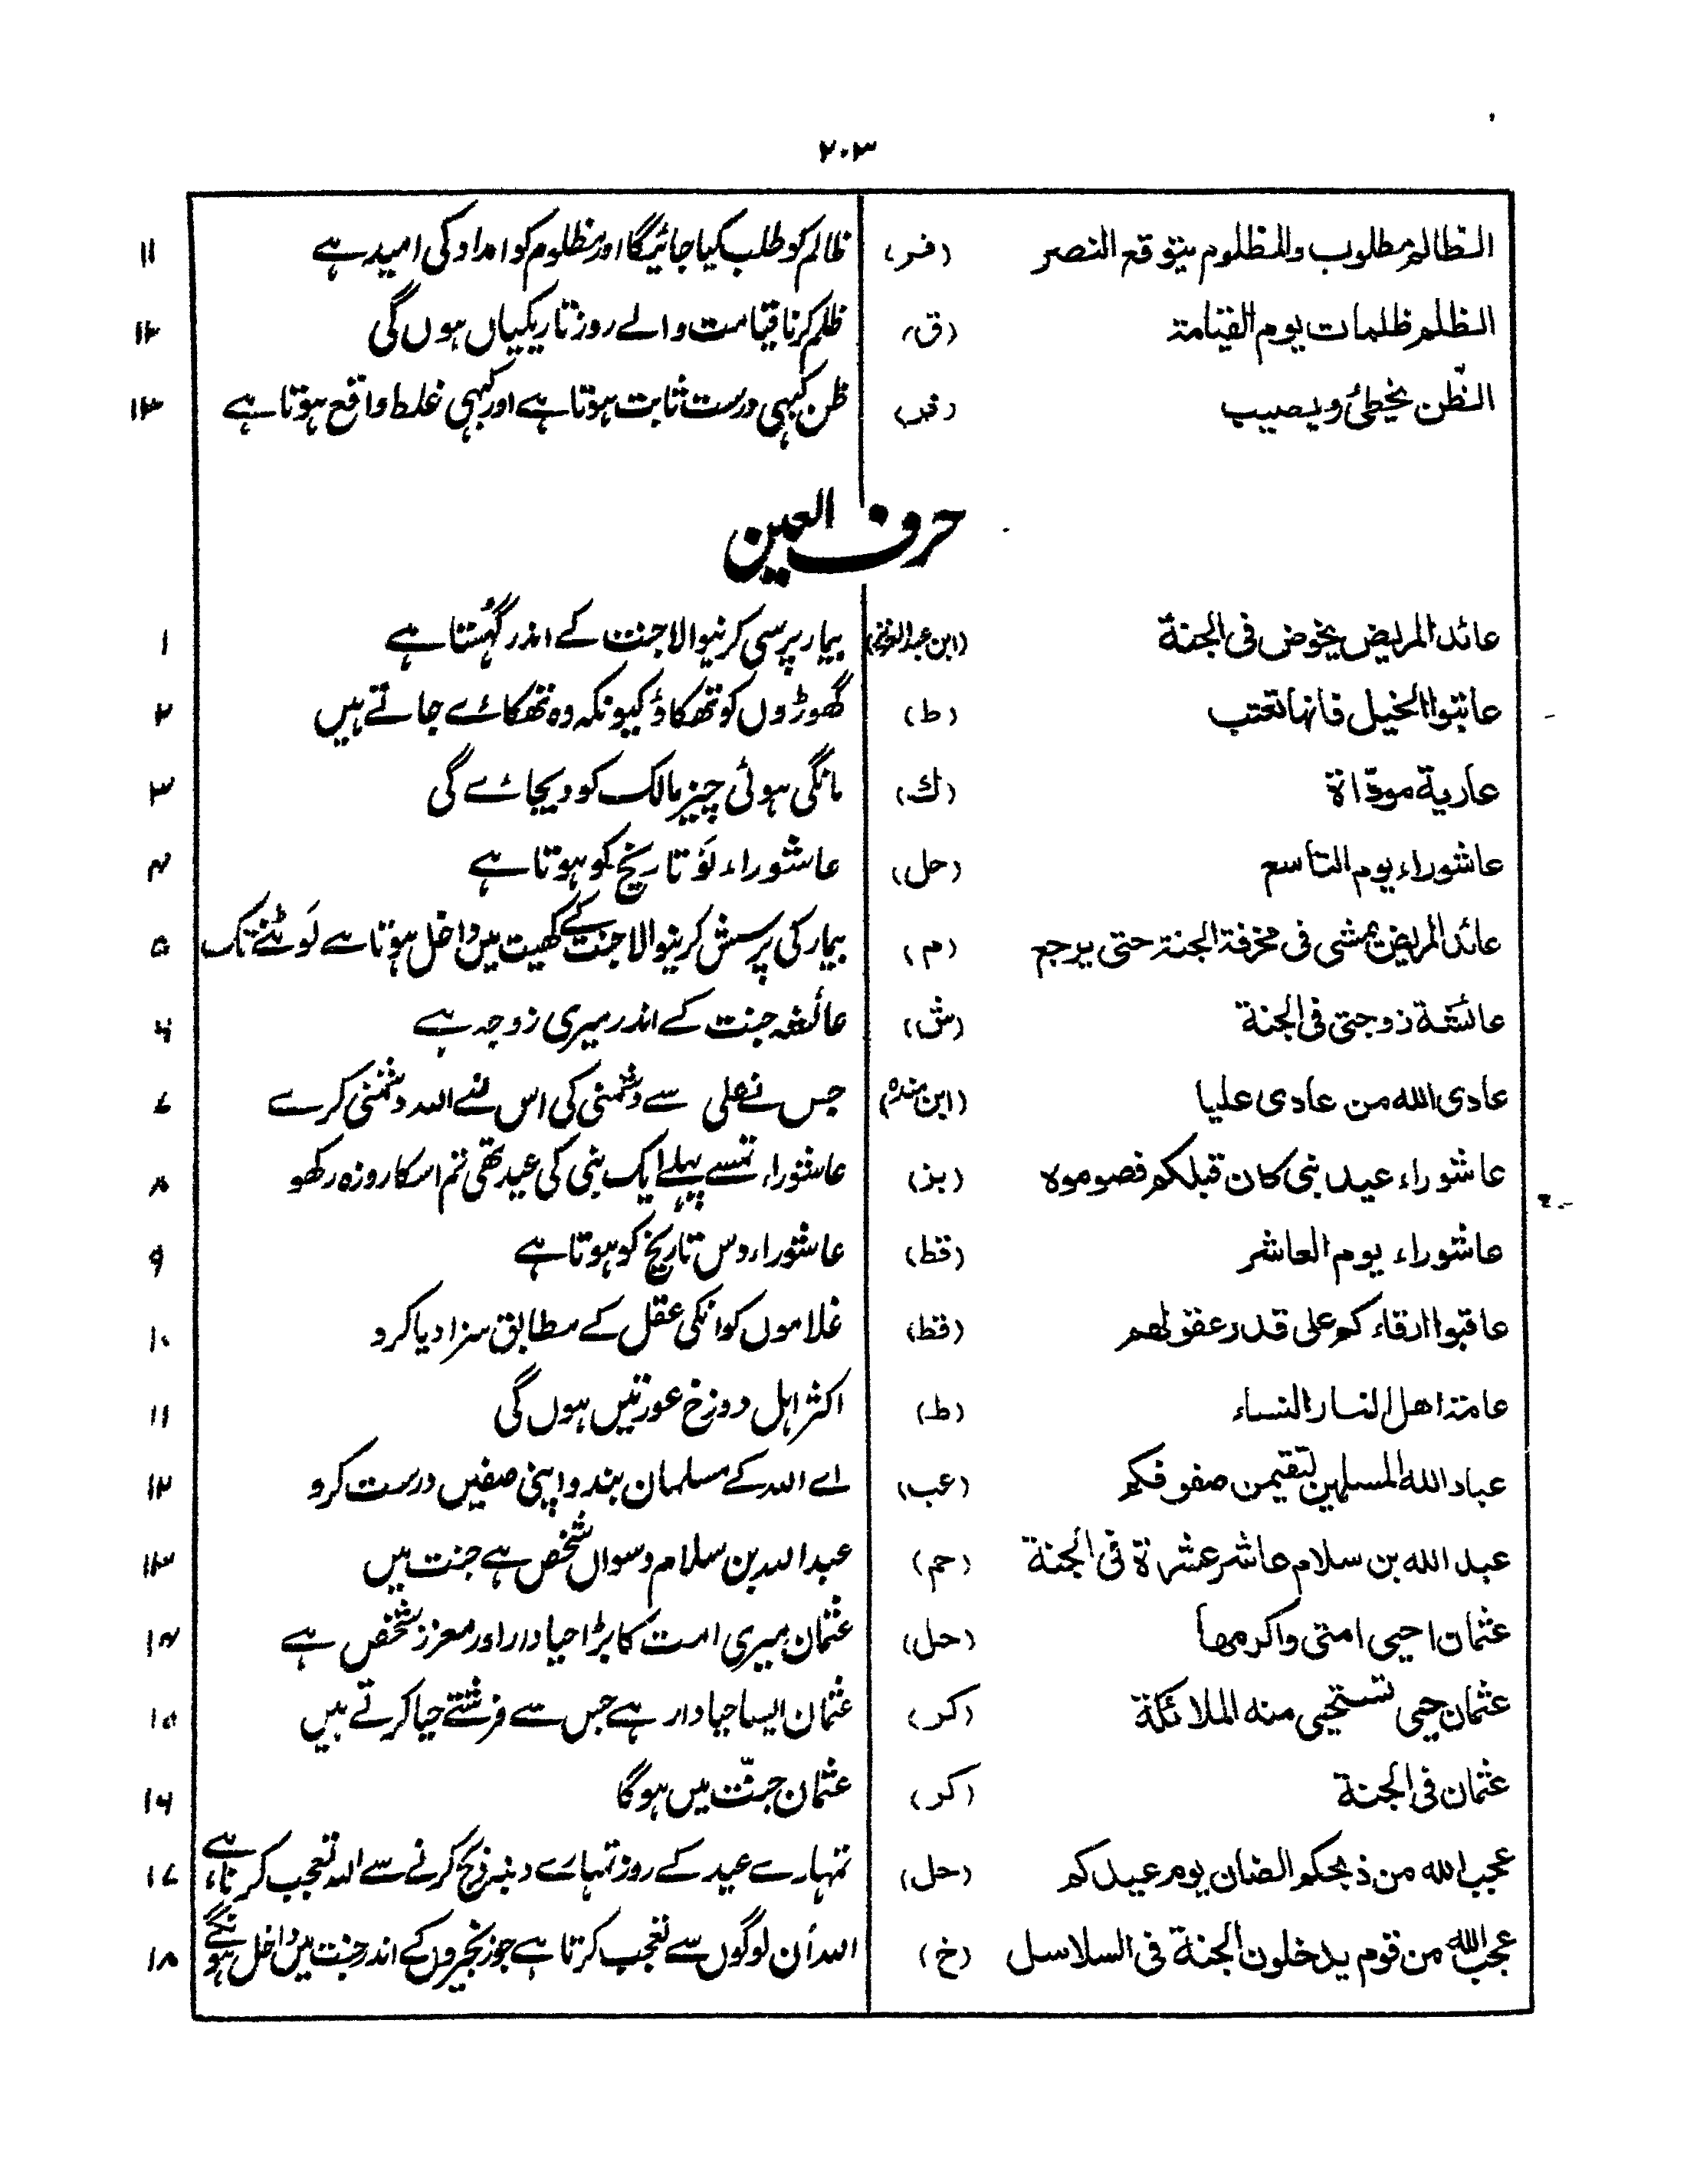 ۲۰۳
الظالم مطلوب والمظلوم یتوقع النصر (فر) ظالم کو طلب کیا جائیگا اور مظلوم کو امداد کی امید ہے ۱۱
الظلم ظلمات یوم القیامة (ق) ظلم کرنا قیامت والے روز تاریکیاں ہوں گی ۱۲
الظّن یخطئ ویصیب (فر) ظن کبہی درست ثابت ہوتا ہے اور کبہی غلط واقع ہوتا ہے ۱۳
حرف العین
عائد المریض یخوض فی الجنة (ابن عبد العزیز) بیمار پرسی کرنیوالا جنت کے اندر گہستا ہے ۱
عاتبوا الخیل فانها تعتب (ط) گھوڑوں کو تھکاؤ کیونکہ وہ تھکائے جاتے ہیں ۲
عاریة مودّاة (ك) مانگی ہوئی چیز مالک کو دیجائے گی ۳
عاشوراء یوم التاسع (حل) عاشوراء نَو تاریخ کو ہوتا ہے ۴
عائد المریض یمشی فی مخرفة الجنة حتی یرجع (م) بیمار کی پرسش کرنیوالا جنت کے کھیت میں داخل ہوتا ہے لَوٹنے تک ۵
عائشة زوجتی فی الجنة (ش) عائشہ جنت کے اندر میری زوجہ ہے ۶
عادی الله من عادی علیا (ابن منده) جس نے علی سے دشمنی کی اس سے اللہ دشمنی کرے ۷
عاشوراء عید نبی کان قبلکم فصوموه (بز) عاشوراء تمسے پہلے ایک نبی کی عید تھی تم اسکا روزہ رکھو ۸
عاشوراء یوم العاشر (قط) عاشوراء دس تاریخ کو ہوتا ہے ۹
عاقبوا ارقاءکم علی قدر عقولهم (قط) غلاموں کو انکی عقل کے مطابق سزا دیا کرو ۱۰
عامة اهل النار النساء (ط) اکثر اہل دوزخ عورتیں ہوں گی ۱۱
عباد الله المسلمین لتقیمن صفوفکم (عب) اے اللہ کے مسلمان بندو اپنی صفیں درست کرو ۱۲
عبد الله بن سلام عاشر عشرة فی الجنة (حم) عبد اللہ بن سلام دسواں شخص ہے جنت میں ۱۳
عثمان احیی امتی واکرمها (حل) عثمان میری امت کا بڑا حیا دار اور معزز شخص ہے ۱۴
عثمان حیی تستحیی منه الملائکة (کر) عثمان ایسا حیا دار ہے جس سے فرشتے حیا کرتے ہیں ۱۵
عثمان فی الجنة (کر) عثمان جنّت میں ہوگا ۱۶
عجب الله من ذبحکم الضان یوم عیدکم (حل) تمہارے عید کے روز تمہارے دنبہ ذبح کرنے سے اللہ تعجب کرتا ہے ۱۷
عجب الله من قوم یدخلون الجنة فی السلاسل (خ) اللہ اُن لوگوں سے تعجب کرتا ہے جو زنجیروں کے اندر جنت میں داخل ہونگے ۱۸